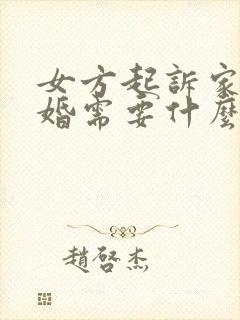 女方起訴家
婚需要什麼
趙啓杰